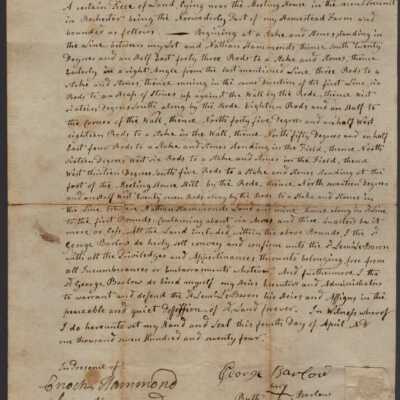 A certain Piece of Land, lying near the Meeting House in the
in Rochester being the Northerly Part of my Homestead Farm and
bounded as follows. Begining at a Stake and Stones standing in
the Line between my Lot and Nathan Hammonds thence South twenty
Degrees and an Half East forty three Rods to a Stake and Stones, thence
Easterly in a right Angle from the last mentioned Line, three Rods to a
Stake and Stones, thence runing in the same Direction of the first Line, six
Rods to an Heap of Stones up against the Wall by the Rode, thence West
sixteen Degrees South along by the Rode Eighteen Rods and an Half to
the Corner of the Wall, thence North forty five Degrees and an half West
eighteen Rods to a Stake in the Wall, thence North fifty Degrees and an half
East Rods to a Stake and Stones standing in the Field, thence North
sixteen Degrees West six Rods to a Stake and Stones in the Field, thence
West thirteen Degrees South five Rods to a Stake and Stones standing at the
foot of the Meeting House Hill by the Rode, thence North nineteen Degrees
and an half West twenty one Rods along by the Rode to a Stake and Stones in
the Line between Nathan Hammonds Land and mine, hence along in s'd Line
to the first Bounds, Containing about six Acres and three Quarters be it
more or less. All the Land included within the above Bounds I the s'd
George Barlow do herby sell convey and confirm unto the s'd Lem'l Le Baron
with all the Priviledges and Appurtinances thereunto belonging free from
all Incumbrances or Embarrasments whatever. And furthermore I the
s'd George Barlow do bind myself my Heirs Executors and Administrators
to warrant and defend the s'd Lem'l Le Baron his Heirs and Assigns in the
peaceable and quiet Possession of s'd Land forever. In Witness whereof
I do hereunto set my Hand and Seal this fourth Day of April AD
one thousand seven Hundred and seventy four.
In Presence of
George Barlow
Enoch Hammond
and
Ruth Barlow